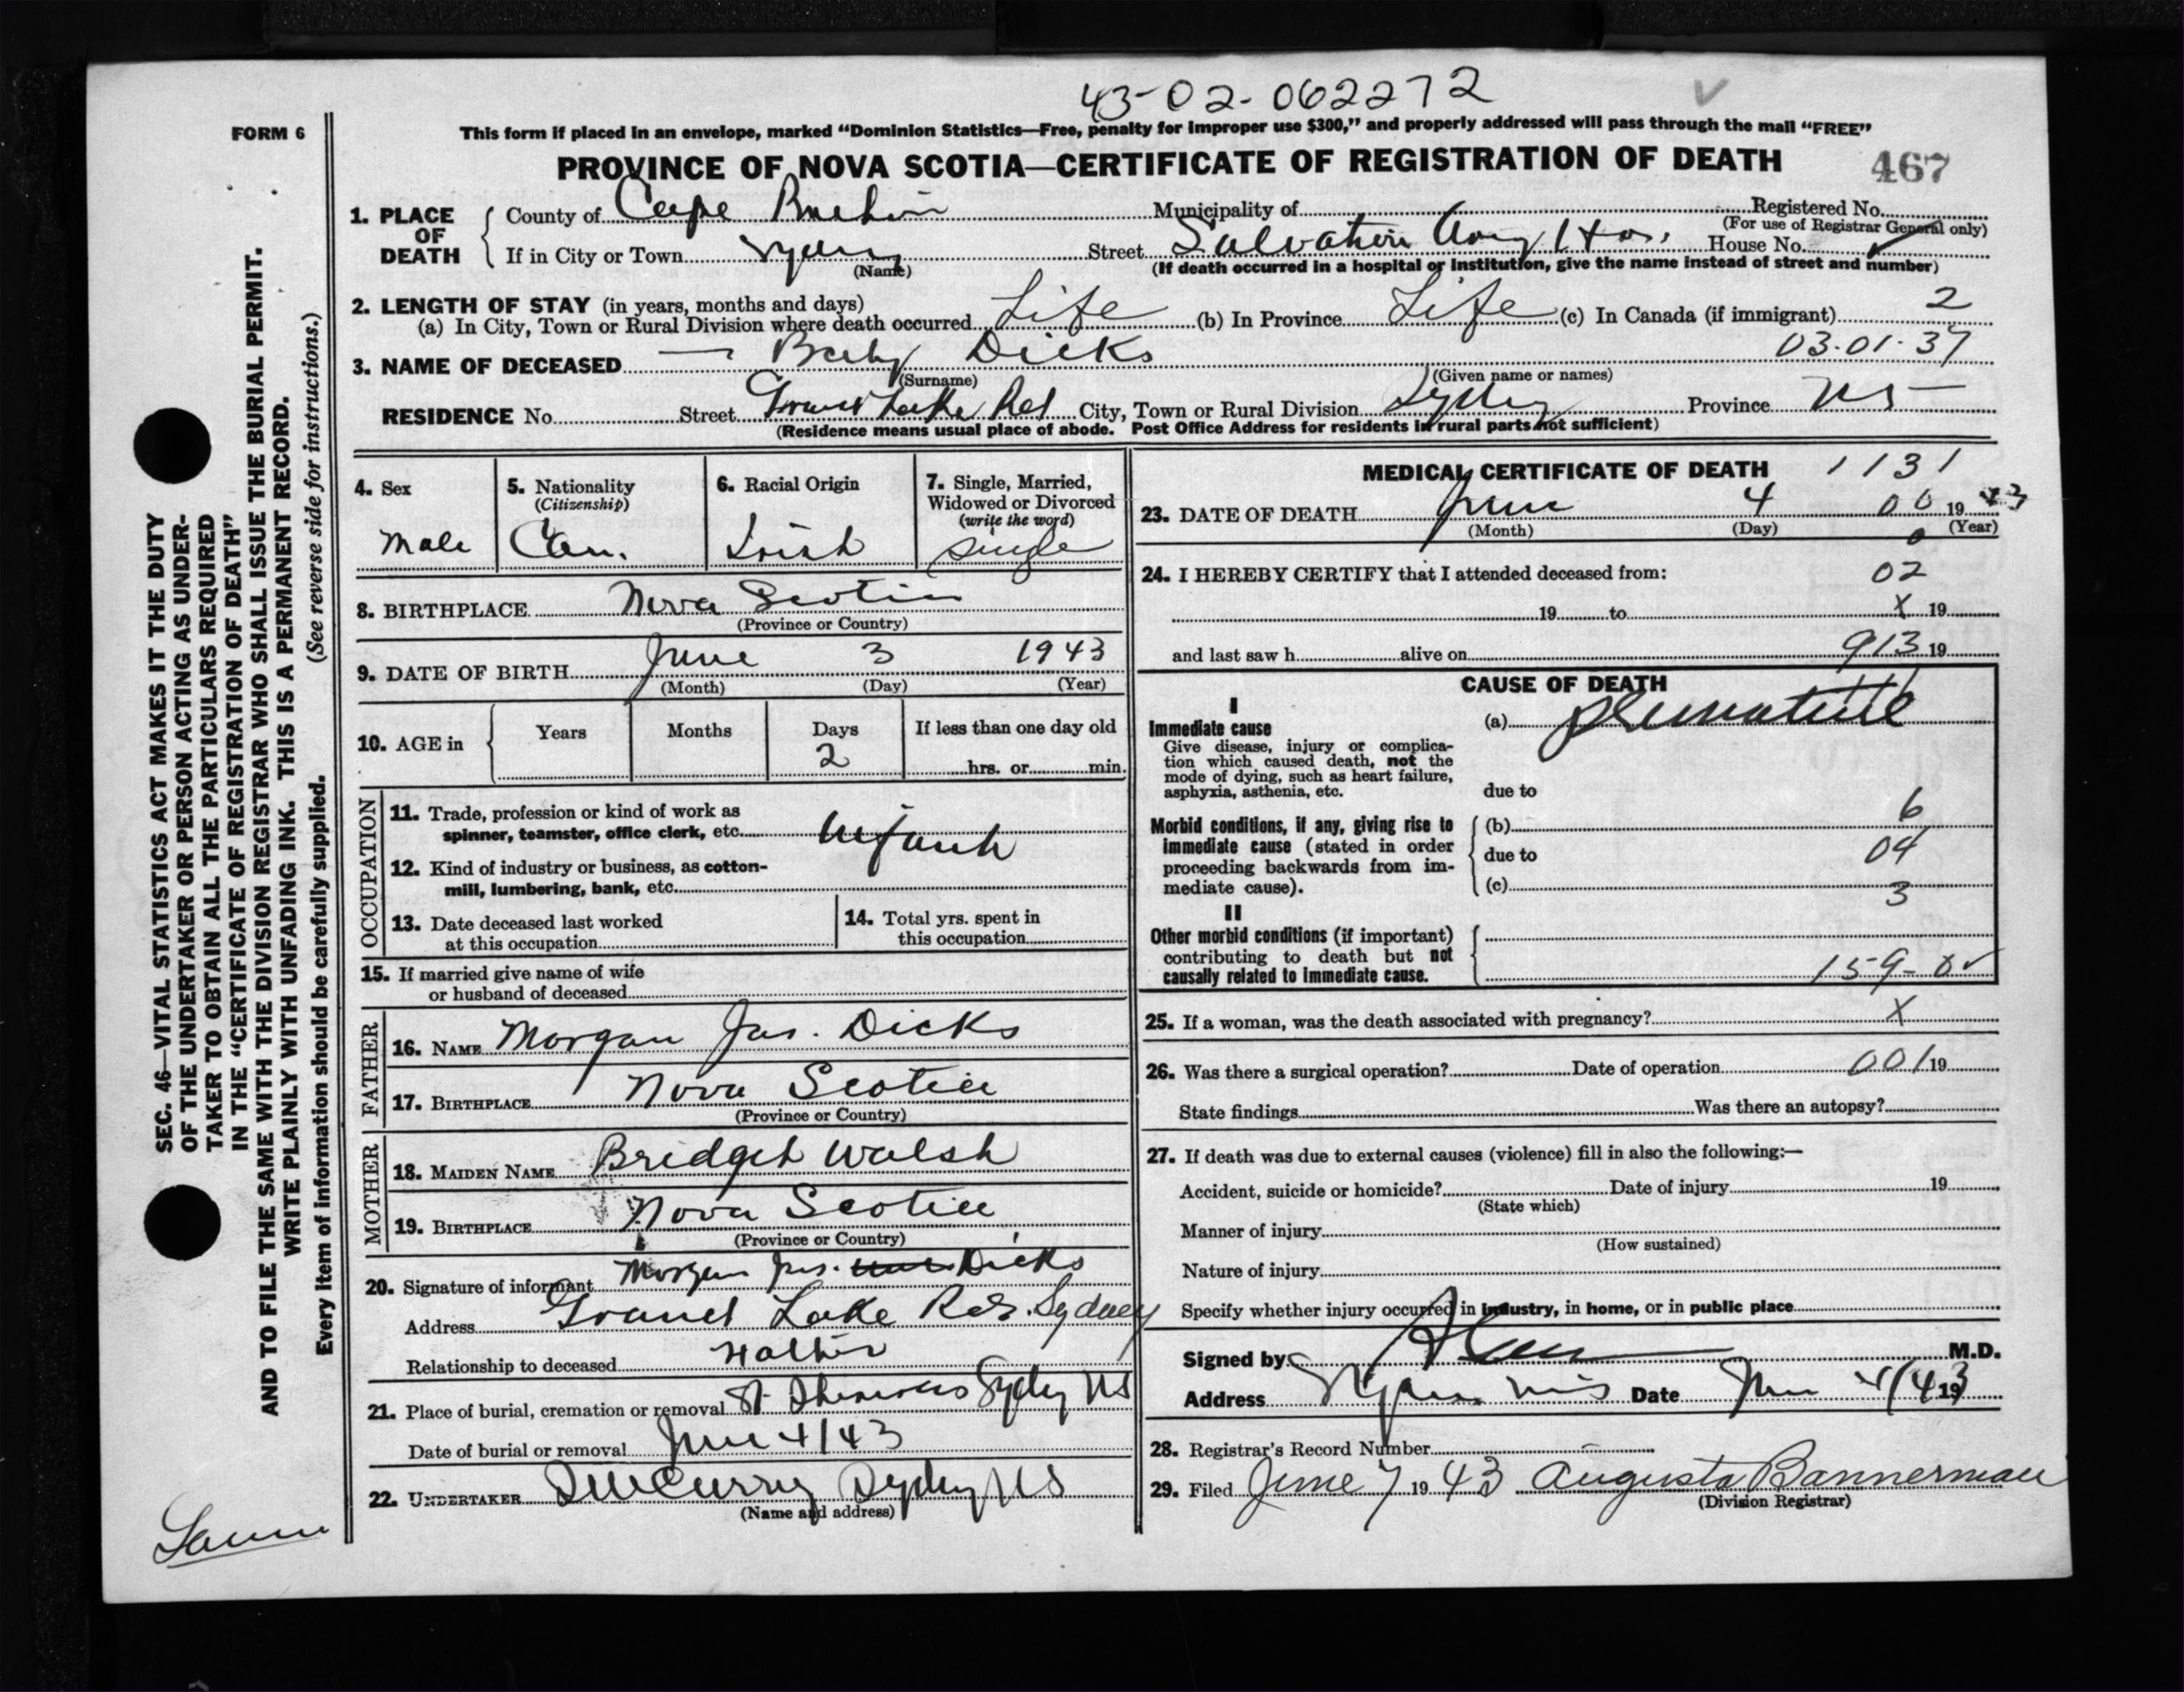 43-02-062272
FORM 6
This form if placed in an envelope, marked "Dominion Statistics—Free, penalty for improper use $300," and properly addressed will pass through the mail "FREE"
PROVINCE OF NOVA SCOTIA—CERTIFICATE OF REGISTRATION OF DEATH 467
SEC. 46—VITAL STATISTICS ACT MAKES IT THE DUTY
OF THE UNDERTAKER OR PERSON ACTING AS UNDER-
TAKER TO OBTAIN ALL THE PARTICULARS REQUIRED
IN THE "CERTIFICATE OF REGISTRATION OF DEATH"
AND TO FILE THE SAME WITH THE DIVISION REGISTRAR WHO SHALL ISSUE THE BURIAL PERMIT.
WRITE PLAINLY WITH UNFADING INK. THIS IS A PERMANENT RECORD.
Every item of information should be carefully supplied. (See reverse side for instructions.)
1. PLACE OF DEATH
County of Cape Breton Municipality of Registered No.
(For use of Registrar General only)
If in City or Town Sydney Street Salvation Army Hos. House No.
(Name) (If death occurred in a hospital or institution, give the name instead of street and number)
2. LENGTH OF STAY (in years, months and days)
(a) In City, Town or Rural Division where death occurred Life (b) In Province Life (c) In Canada (if immigrant) 2
3. NAME OF DECEASED — Baby Dicks 03.01.37
(Surname) (Given name or names)
RESIDENCE No. Street Grand Lake Rd City, Town or Rural Division Sydney Province NS
(Residence means usual place of abode. Post Office Address for residents in rural parts not sufficient)
4. Sex Male
5. Nationality (Citizenship) Can.
6. Racial Origin Irish
7. Single, Married, Widowed or Divorced (write the word) Single
8. BIRTHPLACE Nova Scotia
(Province or Country)
9. DATE OF BIRTH June 3 1943
(Month) (Day) (Year)
10. AGE in Years Months Days If less than one day old
2 hrs. or min.
OCCUPATION
11. Trade, profession or kind of work as
spinner, teamster, office clerk, etc. Infant
12. Kind of industry or business, as cotton-
mill, lumbering, bank, etc.
13. Date deceased last worked
at this occupation
14. Total yrs. spent in
this occupation
15. If married give name of wife
or husband of deceased
FATHER
16. NAME Morgan Jas. Dicks
17. BIRTHPLACE Nova Scotia
(Province or Country)
MOTHER
18. MAIDEN NAME Bridget Walsh
19. BIRTHPLACE Nova Scotia
(Province or Country)
20. Signature of informant Morgan Jas. Dicks
Address Grand Lake Rd. Sydney
Relationship to deceased Father
21. Place of burial, cremation or removal St Sydney NS
Date of burial or removal June 4/43
22. UNDERTAKER Curry Sydney NS
(Name and address)
MEDICAL CERTIFICATE OF DEATH 1131
23. DATE OF DEATH June 4 00 19 43
(Month) (Day) (Year)
24. I HEREBY CERTIFY that I attended deceased from: 02
19 to X 19
and last saw h alive on 913 19
CAUSE OF DEATH
I
Immediate cause
Give disease, injury or complica-
tion which caused death, not the
mode of dying, such as heart failure,
asphyxia, asthenia, etc.
(a) Premature
due to
Morbid conditions, if any, giving rise to
immediate cause (stated in order
proceeding backwards from im-
mediate cause).
(b) 6
due to 04
(c) 3
II
Other morbid conditions (if important)
contributing to death but not
causally related to immediate cause.
159-
25. If a woman, was the death associated with pregnancy? X
26. Was there a surgical operation? Date of operation 001 19
State findings Was there an autopsy?
27. If death was due to external causes (violence) fill in also the following:—
Accident, suicide or homicide? Date of injury 19
(State which)
Manner of injury
(How sustained)
Nature of injury
Specify whether injury occurred in industry, in home, or in public place
Signed by M.D.
Address Date June 4/43 19
28. Registrar's Record Number
29. Filed June 7 19 43 Augusta Bannerman
(Division Registrar)